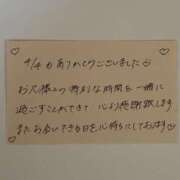 9/4もありがとうございました
お兄様との特別な時間を一緒に
過ごすことができて 心より感謝致します
またお会いできる日を心待ちにしております